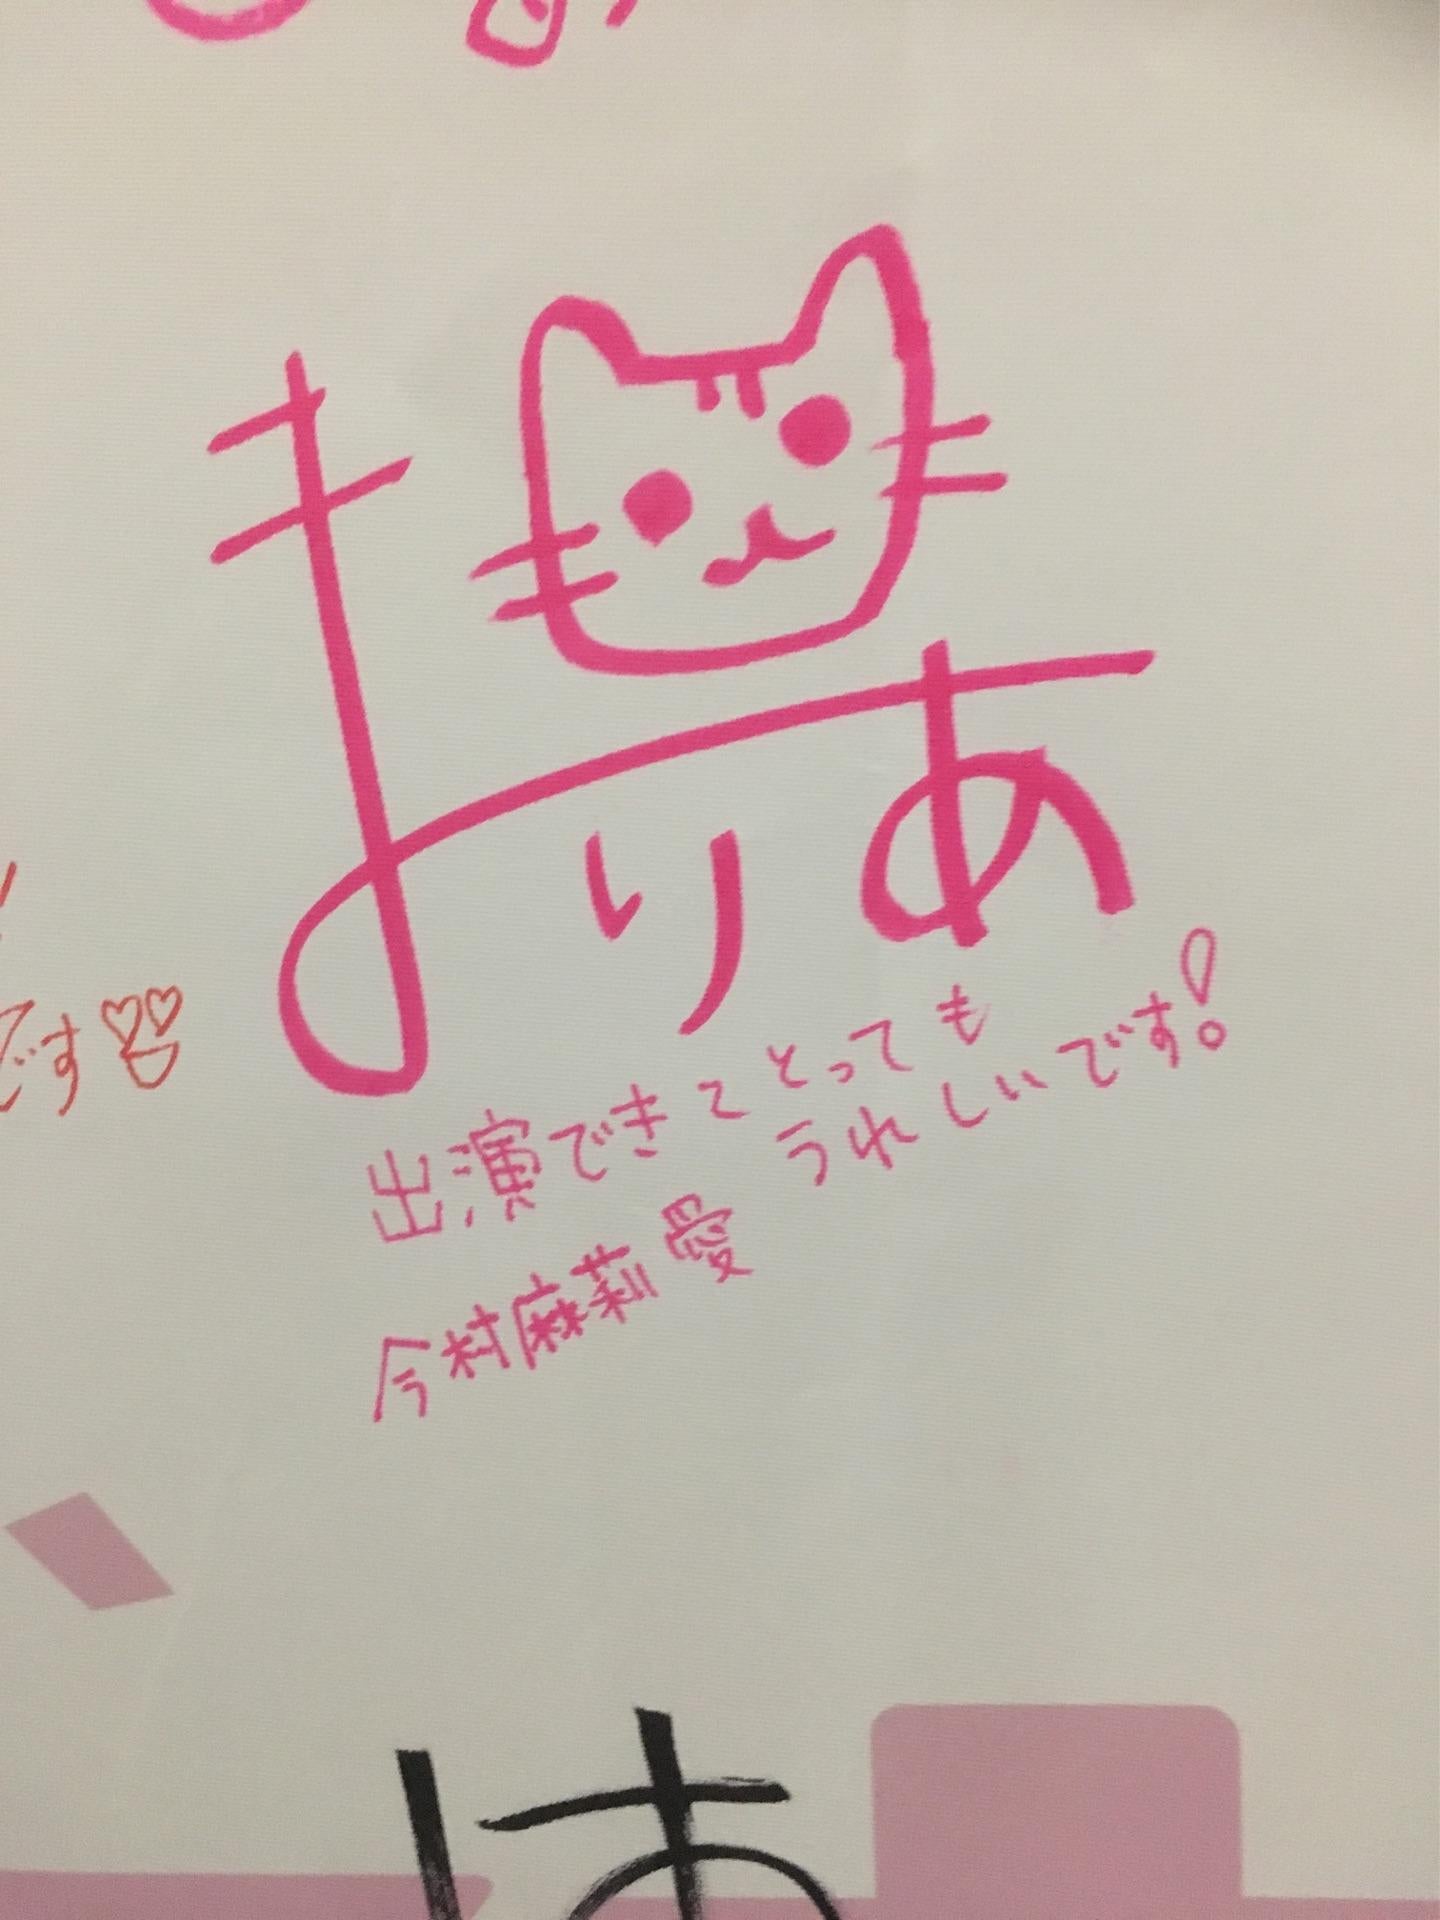 まりあ
出演できてとっても
うれしいです!
今村麻莉愛
です